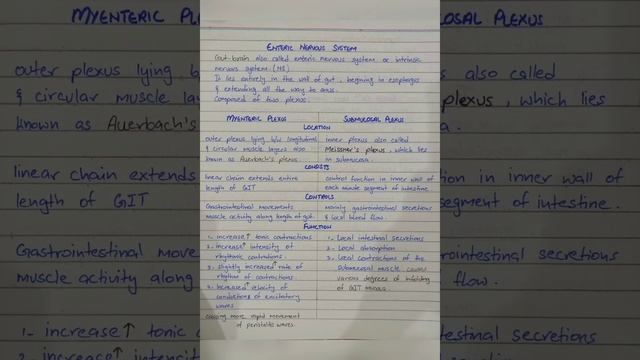 ENTERIC NERVOUS SYSTEM
Gut-brain also called enteric nervous system or intrinsic
nervous system.
It lies entirely in the wall of gut, begining to esophagus
& extending all the way to anus.
Composed of two plexus.
MYENTERIC PLEXUS
SUBMUCOSAL PLEXUS
LOCATION
outer plexus lying b/w longitudinal
& circular muscle layers also
known as Auerbach's plexus
inner plexus also called
Meissner's plexus, which lies
in submucosa.
CONSISTS
linear chain extends entire
length of GIT
control function in inner wall of
each minute segment of intestine.
CONTROLS
Gastrointestinal movements
muscle activity along length of gut.
mainly gastrointestinal secretions
& local blood flow.
FUNCTION
1. increase↑ tonic contractions
2. increase↑ intensity of
rhythmic contractions.
3. slightly increased↑ rate of
rhythm of contractions
4. increased↑ velocity of
conductions of excitatory
waves
causing more rapid movement
of peristaltic waves.
1. Local intestinal secretions
2. Local absorption
3. Local contractions of the
submucosal muscle causes
various degrees of infolding
of GIT mucosa.
MYENTERIC PL
outer plexus lying b
& circular muscle lay
known as Auerbach's
linear chain extends
length of GIT
Gastrointestinal move
muscle activity along
1- increase↑ tonic c
2. increase↑ intensit
OSAL PLEXUS
s also called
plexus, which lies
a.
ion in inner wall of
segment of intestine.
rointestinal secretions
flow.
stinal secretions